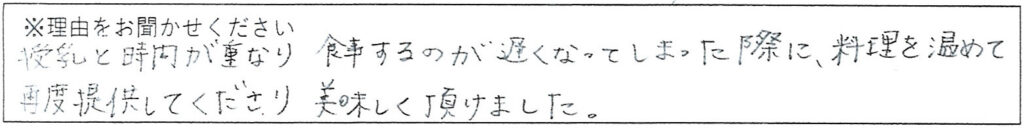 ※理由をお聞かせください
授乳と時間が重なり 食事するのが遅くなってしまった際に、料理を温めて
再度提供してくださり 美味しく頂けました。